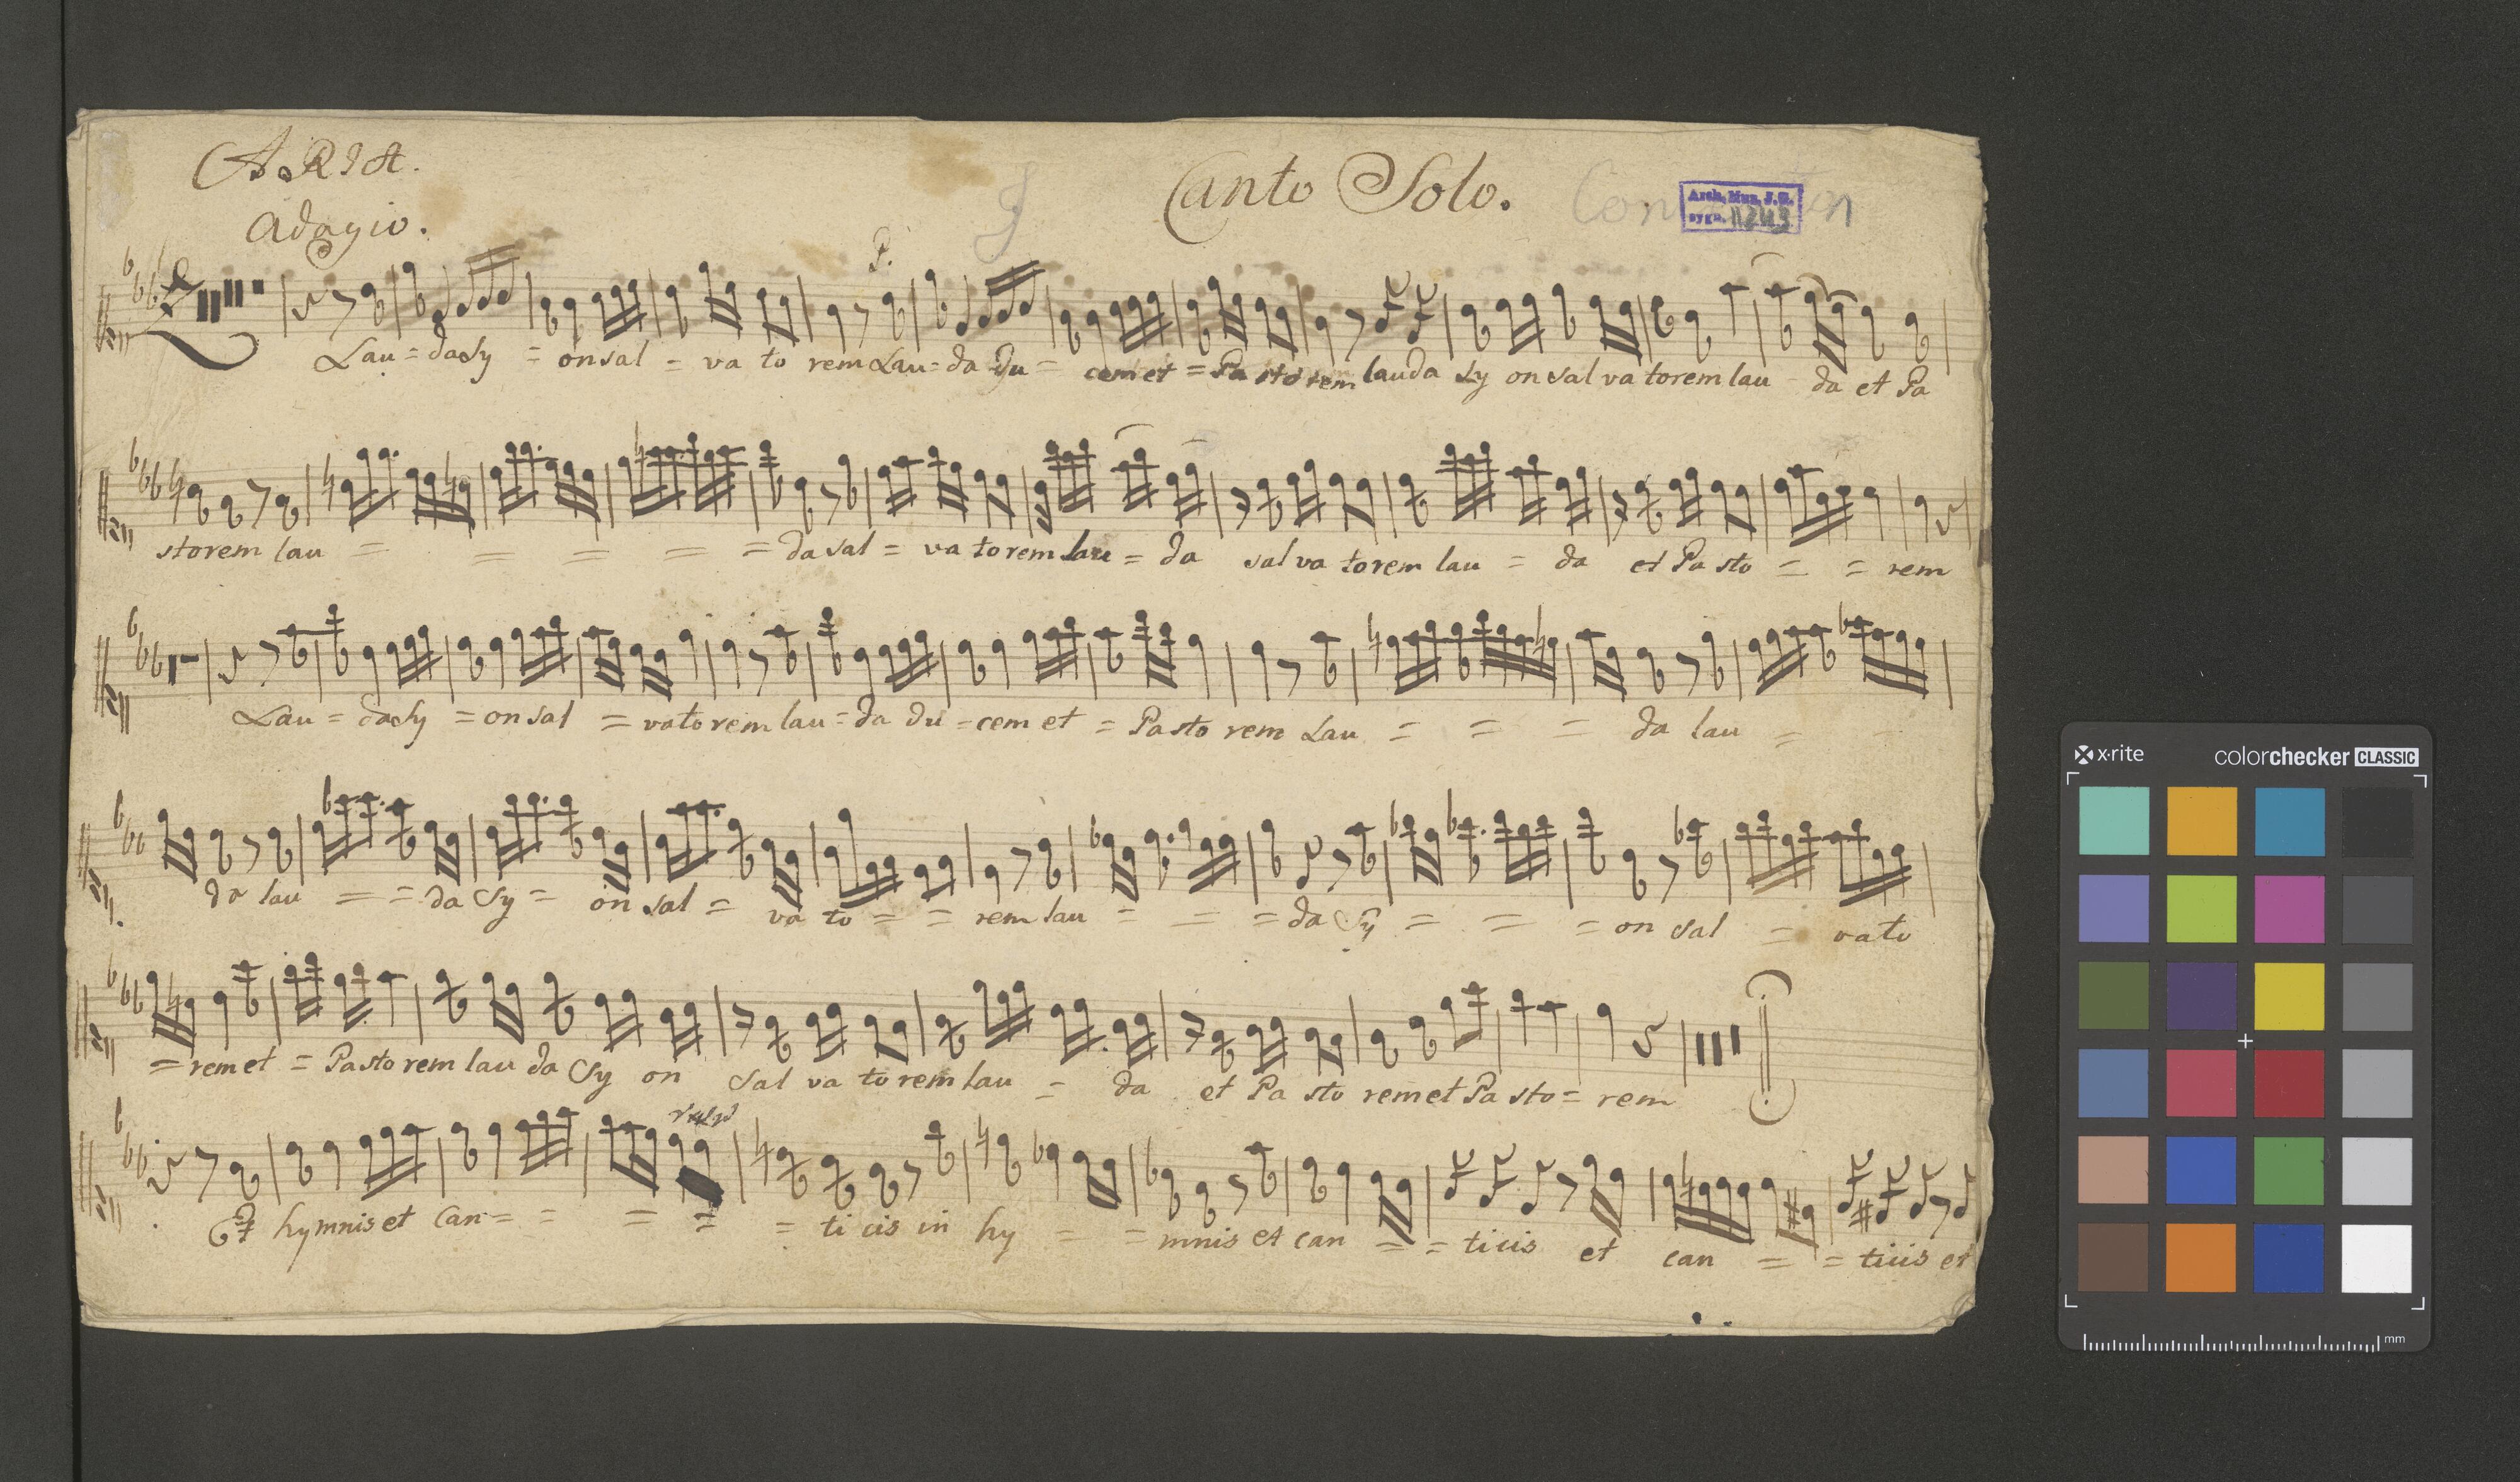 ARIA.
Canto Solo.
Arch. Mus. J. G.
sygn. 11243
Adagio.
P.
Lau = da Sy = on sal = va to rem Lau = da Du = cem et = Pa sto rem lauda Sy on sal va torem lau da et Pa
storem lau = = = = = da sal = va torem lau = da sal va torem lau = da et Pa sto = = rem
Lau = da Sy = on sal = vato rem lau = da du = cem et = Pasto rem Lau = = = da lau =
da lau = = da Sy = on sal = va to = = rem lau = = = da Sy = = = on sal = vato
= rem et = Pasto rem lau da Sy on sal va to rem lau = da et Pa sto rem et Pa sto = rem
hymnis et Can = = = = = ti cis in hy = = mnis et can = = ticis et can = = ticis et
x·rite
colorchecker CLASSIC
mm